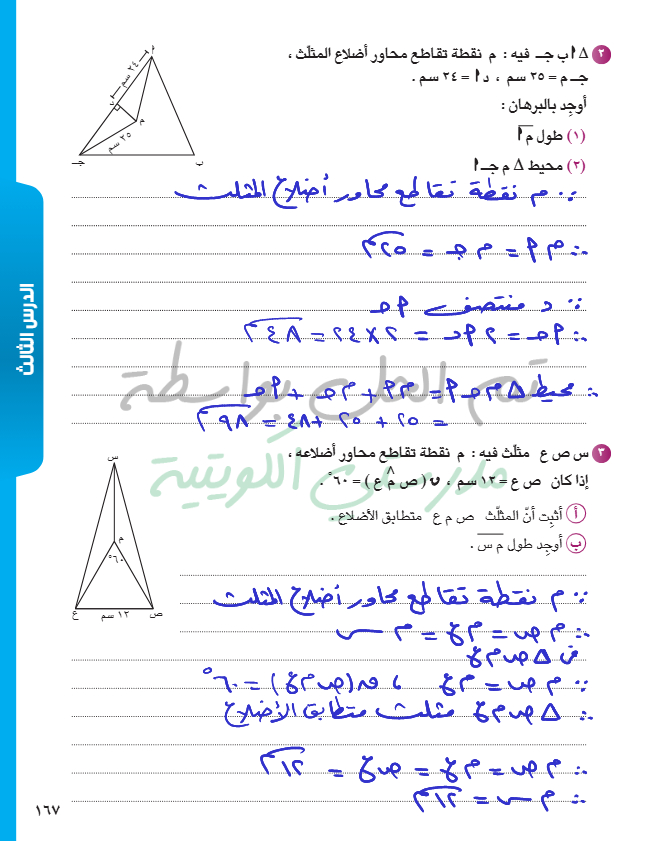 ٢ △ ا ب جـ فيه : م نقطة تقاطع محاور أضلاع المثلّث ،
جـ م = ٢٥ سم ، د ا = ٢٤ سم .
أوجِد بالبرهان :
(١) طول م ا
(٢) محيط △ م جـ ا
ا
٢٤ سم
د
م
٢٥ سم
جـ
ب
∵ م نقطة تقاطع محاور أضلاع المثلث
∴ م أ = م جـ = ٢٥ سم
∵ د منتصف أ حـ
∴ أ حـ = ٢ أ د = ٢ × ٢٤ = ٤٨ سم
∴ محيط △ م حـ أ = م أ + م حـ + أ حـ
= ٢٥ + ٢٥ + ٤٨ = ٩٨ سم
تم الحل بواسطة
مدرستي الكويتية
الدرس الثالث
٣ س ص ع مثلّث فيه : م نقطة تقاطع محاور أضلاعه ،
إذا كان ص ع = ١٢ سم ، ن ( ص م̂ ع ) = ٦٠° .
أ أثبِت أنّ المثلّث ص م ع متطابق الأضلاع .
ب أوجِد طول م س .
س
م
٦٠°
ع
١٢ سم
ص
∵ م نقطة تقاطع محاور أضلاع المثلث
∴ م ص = م ع = م س
في △ ص م ع
∵ م ص = م ع ، ق (ص م ع) = ٦٠°
∴ △ ص م ع مثلث متطابق الأضلاع
∴ م ص = م ع = ص ع = ١٢ سم
∴ م س = ١٢ سم
١٦٧